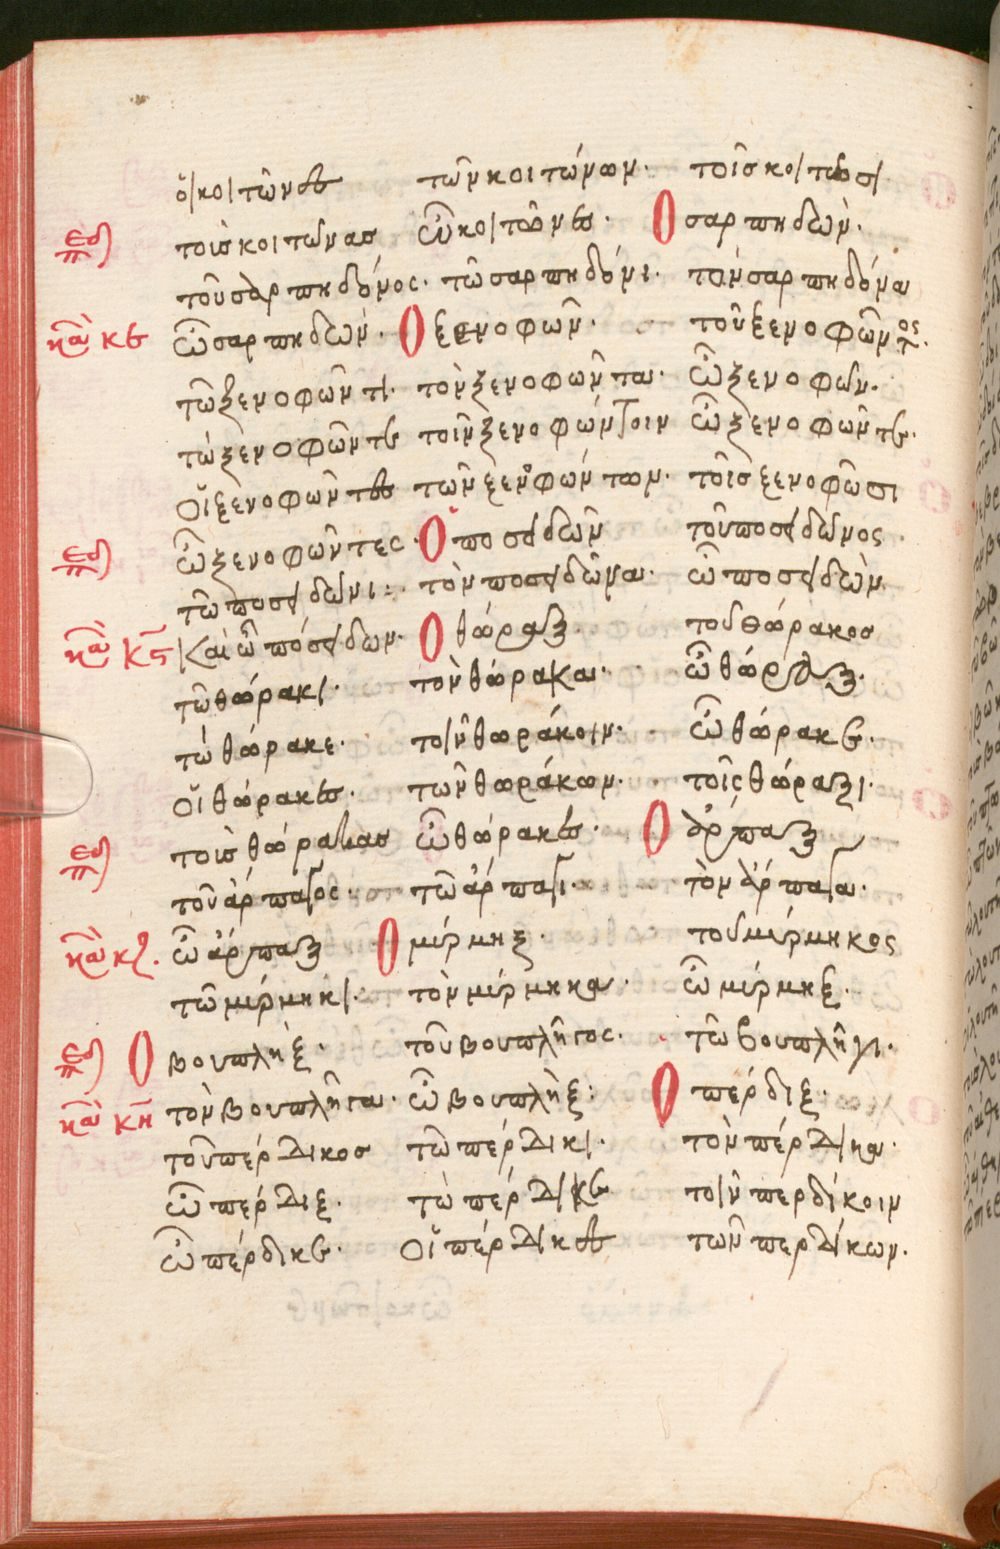 ὁι κοιτῶνες τῶν κοιτώνων· τοῖσ κοιτῶσι
τοὶσ κοιτῶνασ ὦ κοιτῶνες· Ὁ σαρπηδὼν·
τοῦ σαρπηδόνος· τῶ σαρπηδόνι· τὸν σαρπηδόνα
κανὼν κε ὦ σαρπηδὼν· Ὁ ξενοφῶν· τοῦ ξενοφῶντος·
τῶ ξενοφῶντι· τὸν ξενοφῶντα· ὦ ξενοφῶν·
τὼ ξενοφῶντε τοῖν ξενοφώντοιν ὦ ξενοφῶντε·
οἱ ξενοφῶντες τῶν ξενοφώντων· τοῖσ ξενοφῶσι
ὦ ξενοφῶντες· Ὁ ποσειδῶν τοῦ ποσειδῶνος·
τῶ ποσειδῶνι· τὸν ποσειδῶνα· ὦ ποσειδὼν
κανὼν κϛ καὶ ὦ πόσειδων· Ὁ θώραξ· τοῦ θώρακοσ
τῶ θώρακι· τὸν θώρακα· ὦ θώραξ·
τὼ θώρακε· τοῖν θωράκοιν· ὦ θώρακε·
οἱ θώρακες· τῶν θωράκων· τοῖς θώραξι·
τοὶσ θώρακασ ὦ θώρακες· Ὁ ἅρπαξ
τοῦ ἅρπαγος· τῶ ἅρπαγι· τὸν ἅρπαγα·
κανὼν κζ· ὦ ἅρπαξ Ὁ μύρμηξ· τοῦ μύρμηκος
τῶ μύρμηκι· τὸν μύρμηκα· ὦ μύρμηξ·
Ὁ βουπλὴξ· τοῦ βουπλῆγος· τῶ βουπλῆγι·
κανὼν κη τὸν βουπλῆγα· ὦ βουπλὴξ: Ὁ πέρδιξ·
τοῦ πέρδικοσ τῶ πέρδικι· τὸν πέρδικα·
ὦ πέρδιξ· τὼ πέρδικε τοῖν περδίκοιν
ὦ πέρδικε· οἱ πέρδικες τῶν περδίκων·